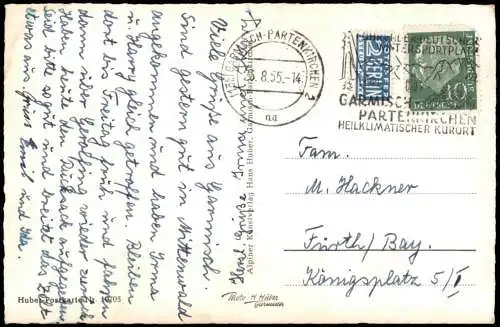 Viele Grüße aus Garmisch.
Sind gestern gut in Mittenwald
angekommen und haben Irma
u. Harry gleich getroffen. Bleiben
bis Freitag früh und fahren
dann über Gerolfing wieder zurück.
Haben heute den Rucksack aufgegeben
Seid bitte so gut und breitet das Zelt
etwas aus. Gruß Emil und Ida.
GARMISCH-PARTENKIRCHEN 2
8.55.-14
aa
WINTERSPORTPLATZ
GARMISCH
PARTENKIRCHEN
HEILKLIMATISCHER KURORT
2
BERLIN
10
Fam.
M. Hackner
Fürth/Bay.
Königsplatz 5/I
Alpiner Kunstverlag Hans Huber, Garmisch-Partenkirchen
Huber-Postkarte Nr. 10705
Photo-H. Huber
Garmisch